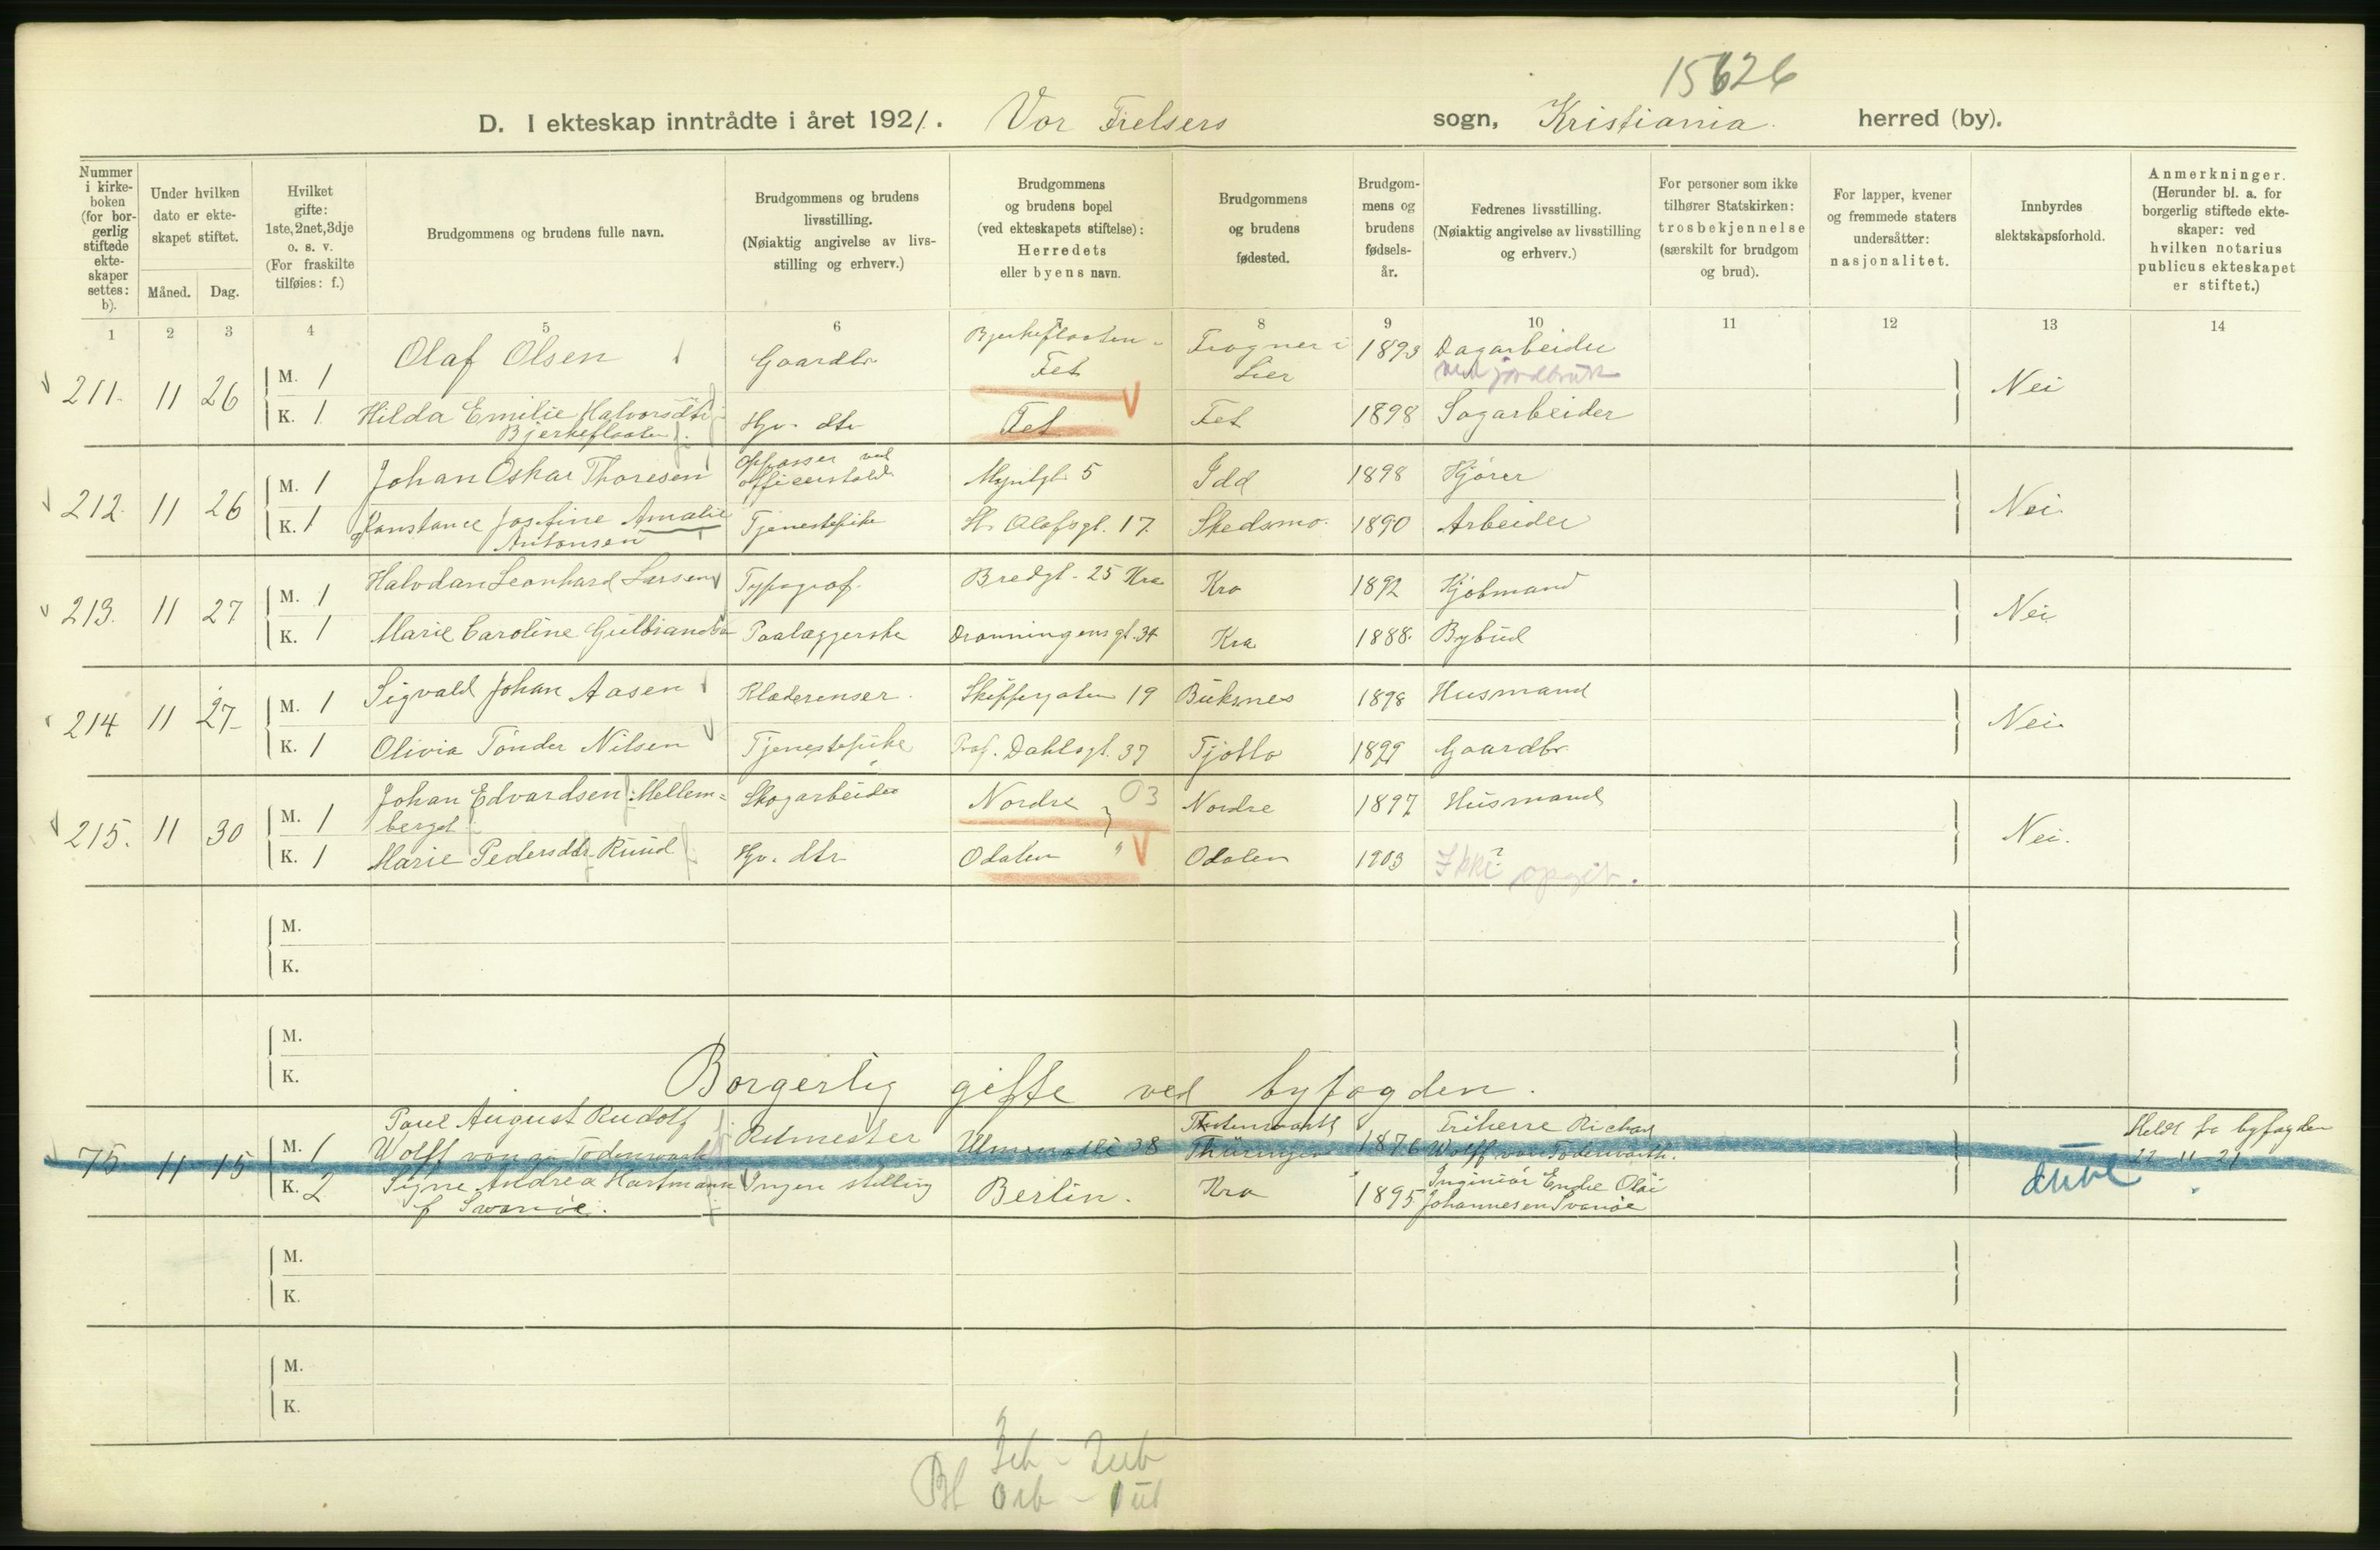 15626
D. I ekteskap inntrådte i året 1921. Vor Frelsers sogn, Kristiania. herred (by).
Nummer i kirke- boken (for bor- gerlig stiftede ekte- skaper settes: b).
Under hvilken dato er ekte- skapet stiftet.
Måned. Dag.
Hvilket gifte: 1ste, 2net, 3dje o. s. v. (For fraskilte tilføies: f.)
Brudgommens og brudens fulle navn.
Brudgommens og brudens livsstilling. (Nøiaktig angivelse av livs- stilling og erhverv.)
Brudgommens og brudens bopel (ved ekteskapets stiftelse): Herredets eller byens navn.
Brudgommens og brudens fødested.
Brudgom- mens og brudens fødsels- år.
Fedrenes livsstilling. (Nøiaktig angivelse av livsstilling og erhverv.)
For personer som ikke tilhører Statskirken: trosbekjennelse (særskilt for brudgom og brud).
For lapper, kvener og fremmede staters undersåtter: nasjonalitet.
Innbyrdes slektskapsforhold.
Anmerkninger. (Herunder bl. a. for borgerlig stiftede ekte- skaper: ved hvilken notarius publicus ekteskapet er stiftet.)
1 2 3 4 5 6 7 8 9 10 11 12 13 14
211. 11 26 M. 1 Olaf Olsen Gaardbr. Bjerkeflaaten Fet Frogner i Lier 1893 Dagarbeider ved jordbruk Nei
K. 1 Hilda Emilie Halvorsdtr. Bjerkeflaaten Gv. dtr Fet Fet 1898 Sagarbeider
212. 11 26 M. 1 Johan Oskar Thoresen Oppasser ved Myntgt. 5 Idd 1898 Kjører Nei.
K. 1 Konstance Josefine Amalie Antonsen Tjenestepike St. Olafsgt. 17. Skedsmo. 1890 Arbeider
213. 11 27 M. 1 Halvdan Leonhard Larsen Typograf. Bredgt. 25 Kra Kra 1892 Kjøbmand Nei
K. 1 Marie Caroline Gulbrandsen Paalæggerske Dronningensgt. 34 Kra 1888. Bybud
214 11 27 M. 1 Sigvald Johan Aasen Klæderenser. Skippergaten 19 Buksnes 1898 Husmand Nei.
K. 1 Olivia Tønder Nilsen Tjenestepike Prof. Dahlsgt. 37 Tjøtta 1899 Gaardbr.
215. 11 30 M. 1 Johan Edvardsen Mellem= berget Skogarbeider Nordre 03 Nordre 1897 Husmand Nei.
K. 1 Marie Pedersdtr. Ruud Gv. dtr Odalen " Odalen 1903 Ikke opgit.
M.
K.
M.
K.
Borgerlig gifte ved byfogden.
75 11 15 M. 1 Paul August Rudolf Wolff von Todenwarth Ritmester 38 Thüringen 1876 Friherre Richard Wolff von Todenwarth. Meldt fra byfogden 22-11-21
K. 2 Signe Andrea Hartmann f. Svanøe. Ingen stilling Berlin. Kra 1895 Ingeniør Endre Olai Johannesen Svanøe
M.
K.
M.
K.